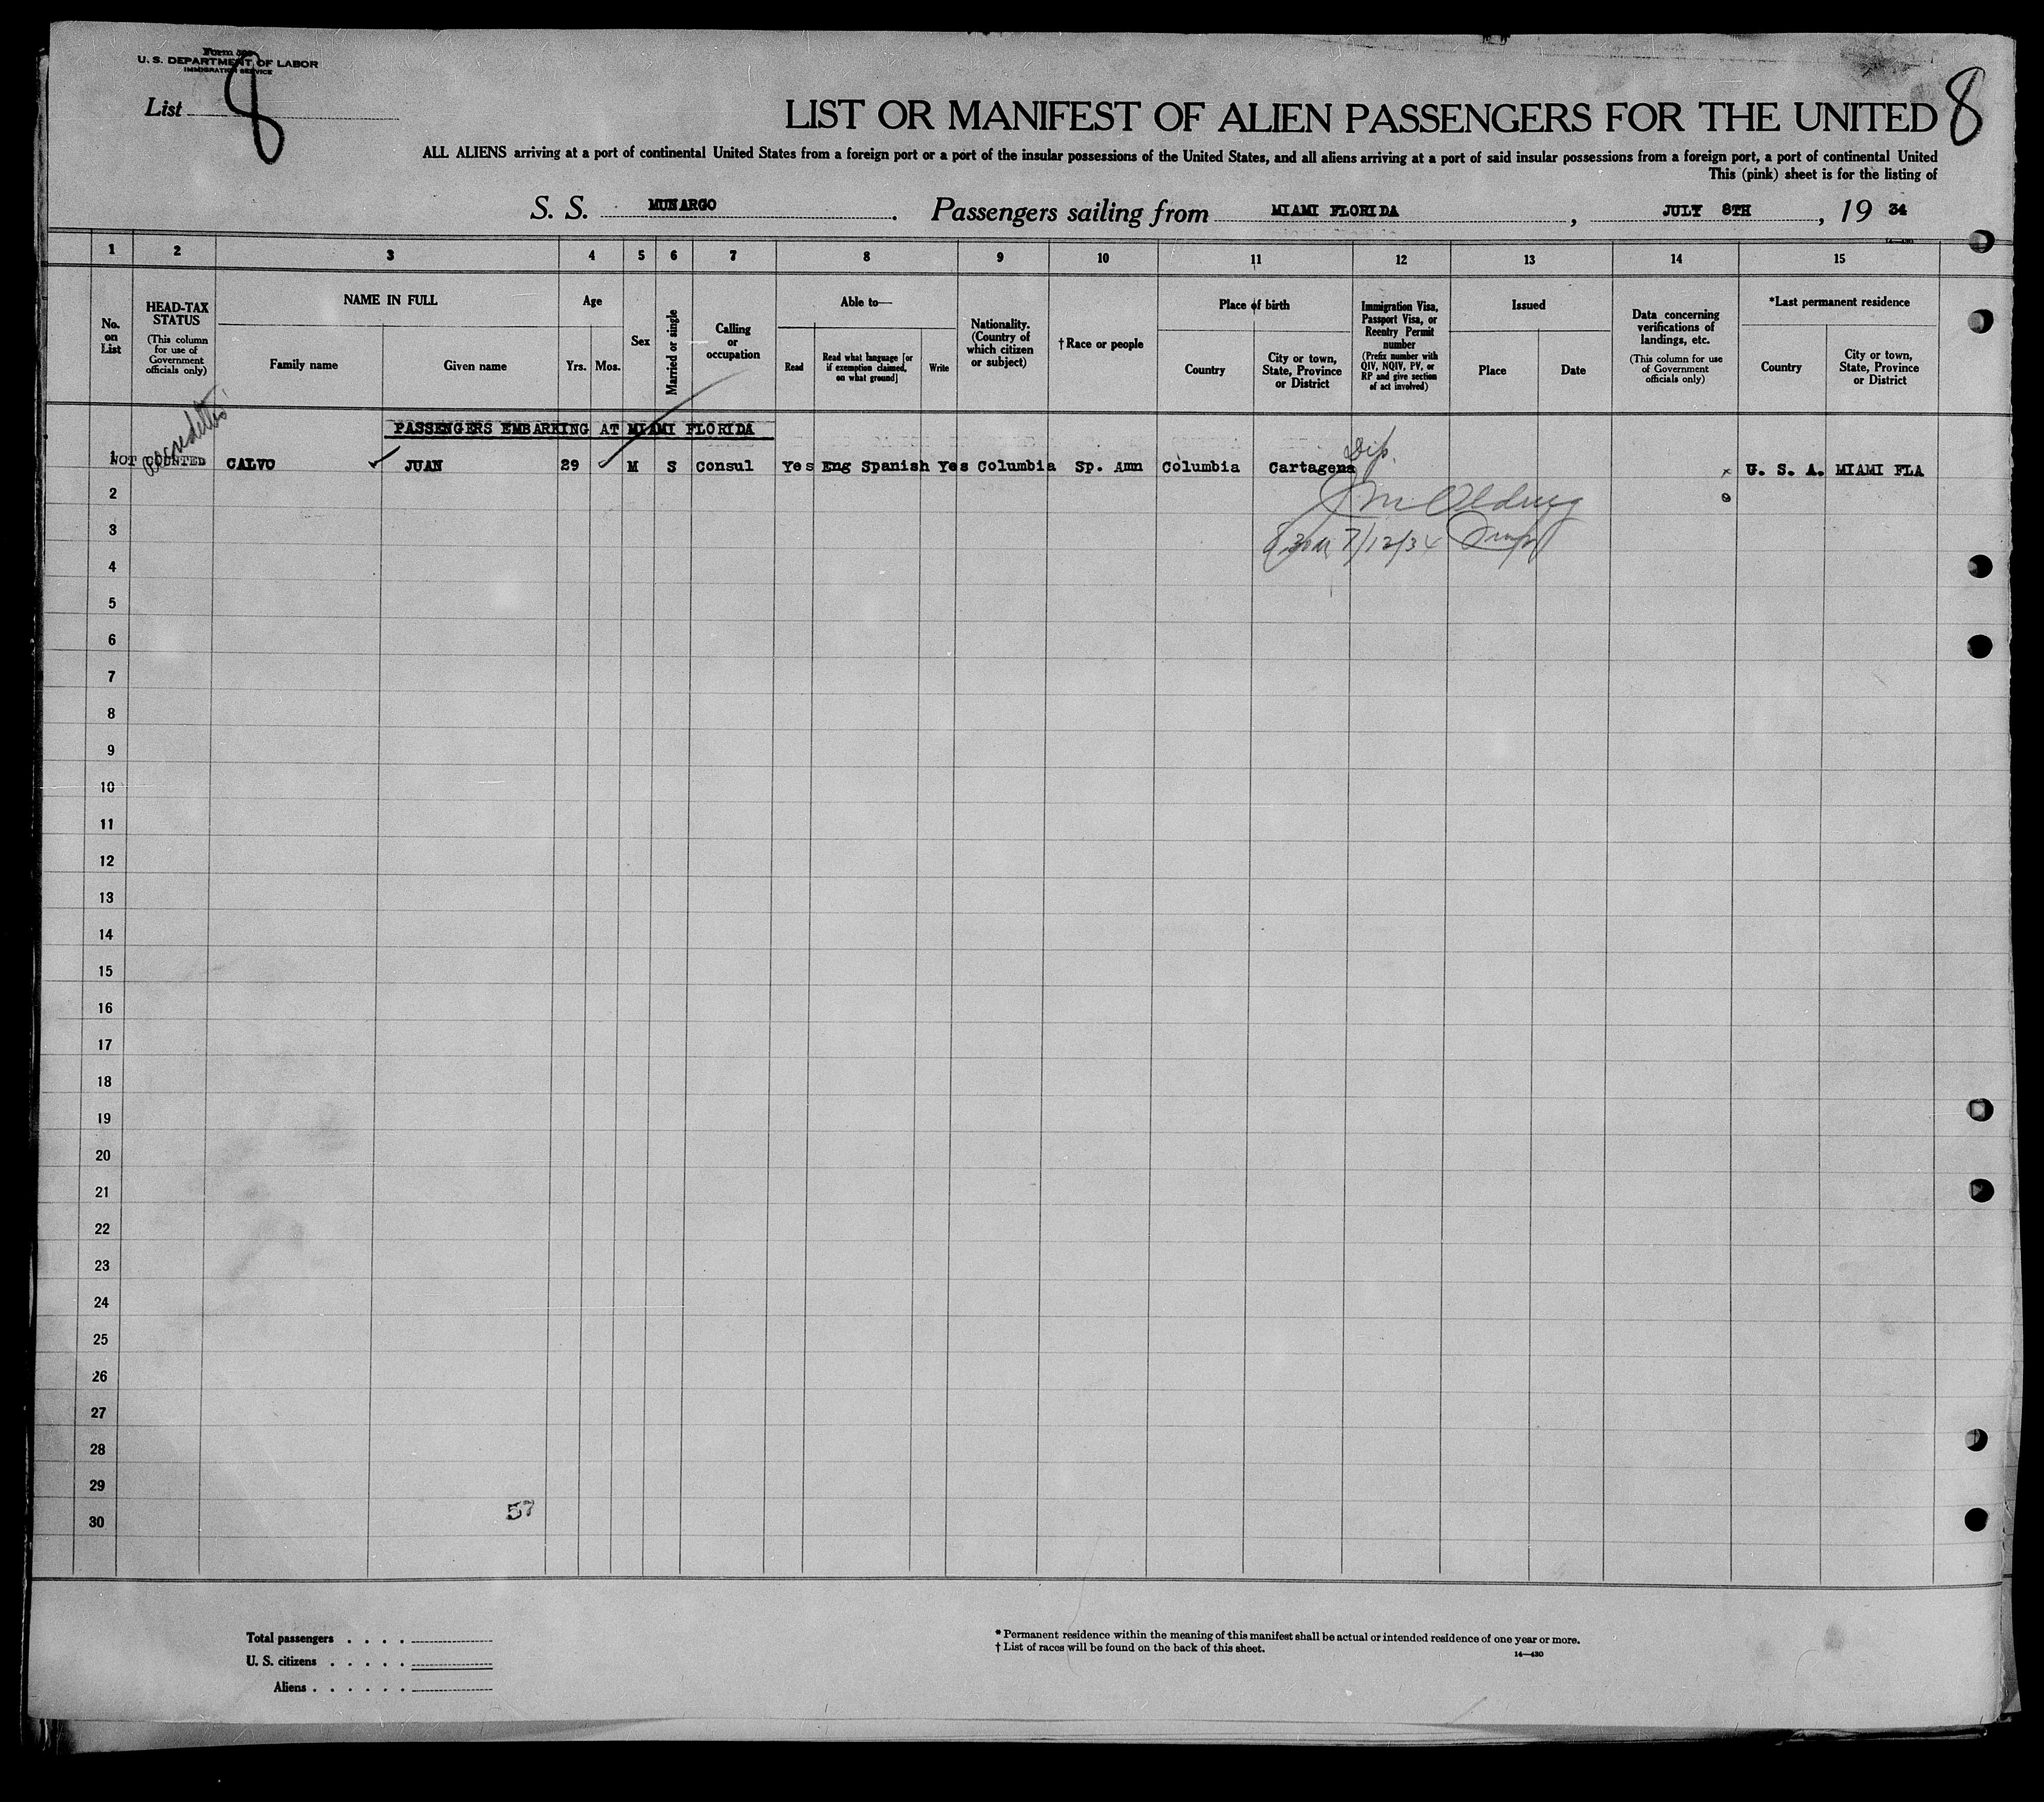 Form 500
U. S. DEPARTMENT OF LABOR
IMMIGRATION SERVICE
List 8
LIST OR MANIFEST OF ALIEN PASSENGERS FOR THE UNITED 8
ALL ALIENS arriving at a port of continental United States from a foreign port or a port of the insular possessions of the United States, and all aliens arriving at a port of said insular possessions from a foreign port, a port of continental United
This (pink) sheet is for the listing of
S. S. MUNARGO. Passengers sailing from MIAMI FLORIDA, JULY 8TH, 19 34
14—430
1 2 3 4 5 6 7 8 9 10 11 12 13 14 15
No. on List
HEAD-TAX STATUS
(This column for use of Government officials only)
NAME IN FULL
Family name
Given name
Age
Yrs. Mos.
Sex
Married or single
Calling or occupation
Able to—
Read
Read what language [or if exemption claimed, on what ground]
Write
Nationality. (Country of which citizen or subject)
†Race or people
Place of birth
Country
City or town, State, Province or District
Immigration Visa, Passport Visa, or Reentry Permit number
(Prefix number with QIV, NQIV, PV, or RP and give section of act involved)
Issued
Place
Date
Data concerning verifications of landings, etc.
(This column for use of Government officials only)
*Last permanent residence
Country
City or town, State, Province or District
PASSENGERS EMBARKING AT MIAMI FLORIDA
Dip.
1 NOT COUNTED CALVO ✓ JUAN 29 ✓ M S Consul Yes Eng Spanish Yes Columbia Sp. Amn Columbia Cartagena x U. S. A. MIAMI FLA
2
3 7/12/34
4
5
6
7
8
9
10
11
12
13
14
15
16
17
18
19
20
21
22
23
24
25
26
27
28
29
57
30
Total passengers . . . .
U. S. citizens . . . . .
Aliens . . . . . .
* Permanent residence within the meaning of this manifest shall be actual or intended residence of one year or more.
† List of races will be found on the back of this sheet.
14—430